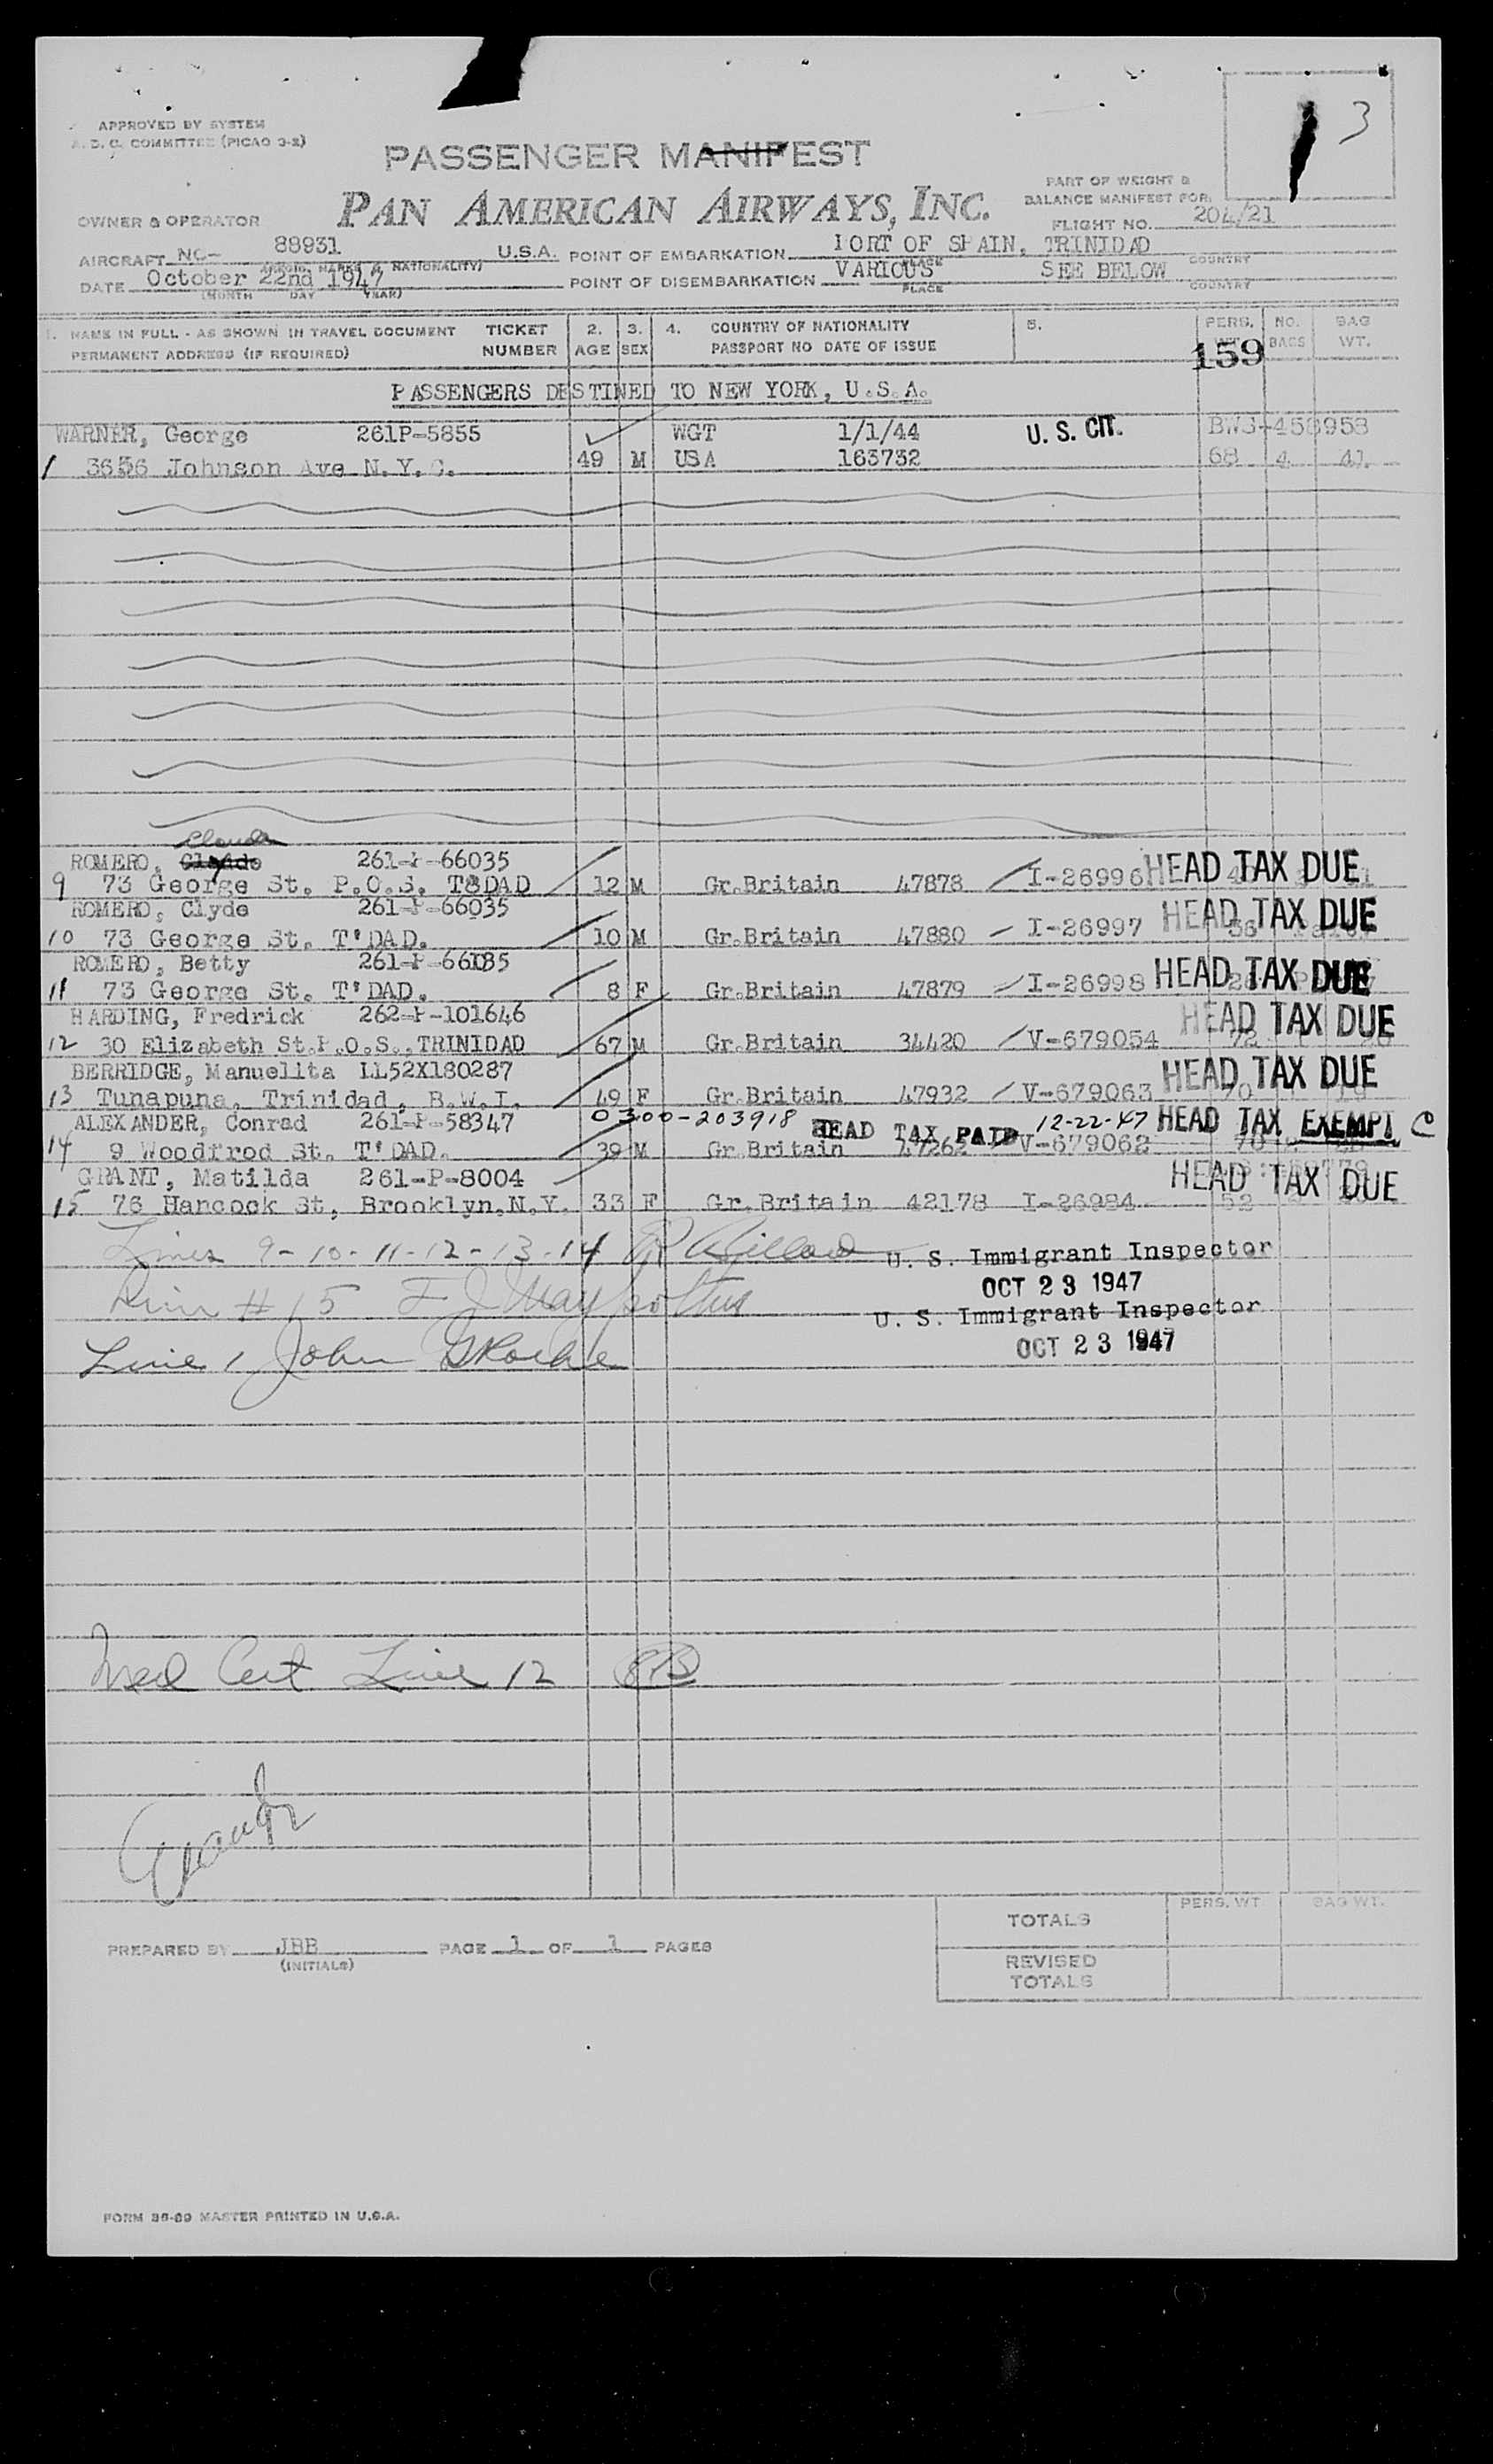 3
APPROVED BY SYSTEM
A. D. C. COMMITTEE (PICAO 3-2)
PASSENGER MANIFEST
PART OF WEIGHT &
BALANCE MANIFEST FOR:
OWNER & OPERATOR PAN AMERICAN AIRWAYS, INC.
FLIGHT NO. 204/21
AIRCRAFT NC- 88931 U.S.A. POINT OF EMBARKATION PORT OF SPAIN, TRINIDAD
NATIONALITY) PLACE COUNTRY
DATE October 22nd 1947 POINT OF DISEMBARKATION VARIOUS SEE BELOW
(MONTH DAY YEAR) PLACE COUNTRY
1. NAME IN FULL - AS SHOWN IN TRAVEL DOCUMENT TICKET 2. 3. 4. COUNTRY OF NATIONALITY 5. PERS. NO. BAG
PERMANENT ADDRESS (IF REQUIRED) NUMBER AGE SEX PASSPORT NO DATE OF ISSUE WT. BAGS WT.
159
PASSENGERS DESTINED TO NEW YORK, U.S.A.
WARNER, George 261P-5855 WGT 1/1/44 U. S. CIT. BWS-458958
1 3656 Johnson Ave N.Y.C. 49 M USA 163732 68 4 41
Claude
ROMERO, Claude 261-P-66035
9 73 George St. P.O.S. T8DAD 12 M Gr.Britain 47878 I-26996 HEAD TAX DUE
ROMERO, Clyde 261-P-66035
10 73 George St. T'DAD. 10 M Gr.Britain 47880 I-26997 HEAD TAX DUE
ROMERO, Betty 261-P-66035
11 73 George St. T'DAD. 8 F Gr.Britain 47879 I-26998 HEAD TAX DUE
HARDING, Fredrick 262-P-101646
12 30 Elizabeth St.P.O.S.,TRINIDAD 67 M Gr.Britain 34420 V-679054 HEAD TAX DUE 72
BERRIDGE, Manuelita LL52X180287
13 Tunapuna, Trinidad, B.W.I. 49 F Gr.Britain 47932 V-679063 HEAD TAX DUE 70
ALEXANDER, Conrad 261-P-58347 0300-203918 HEAD TAX PAID 12-22-47 HEAD TAX EXEMPT C
14 9 Woodfrod St. T'DAD. 39 M Gr.Britain 47262 V-679062 70
GRANT, Matilda 261-P-8004 HEAD TAX DUE
15 76 Hancock St, Brooklyn,N.Y. 33 F Gr.Britain 42178 I-26984 52
Lines 9-10-11-12-13-14 U. S. Immigrant Inspector
OCT 23 1947
Line # 15 U. S. Immigrant Inspector
OCT 23 1947
Line 1 John
Med Cert Line 12
TOTALS PERS. WT. BAG WT.
PREPARED BY JBB PAGE 1 OF 1 PAGES
(INITIALS)
REVISED
TOTALS
FORM 36-69 MASTER PRINTED IN U.S.A.